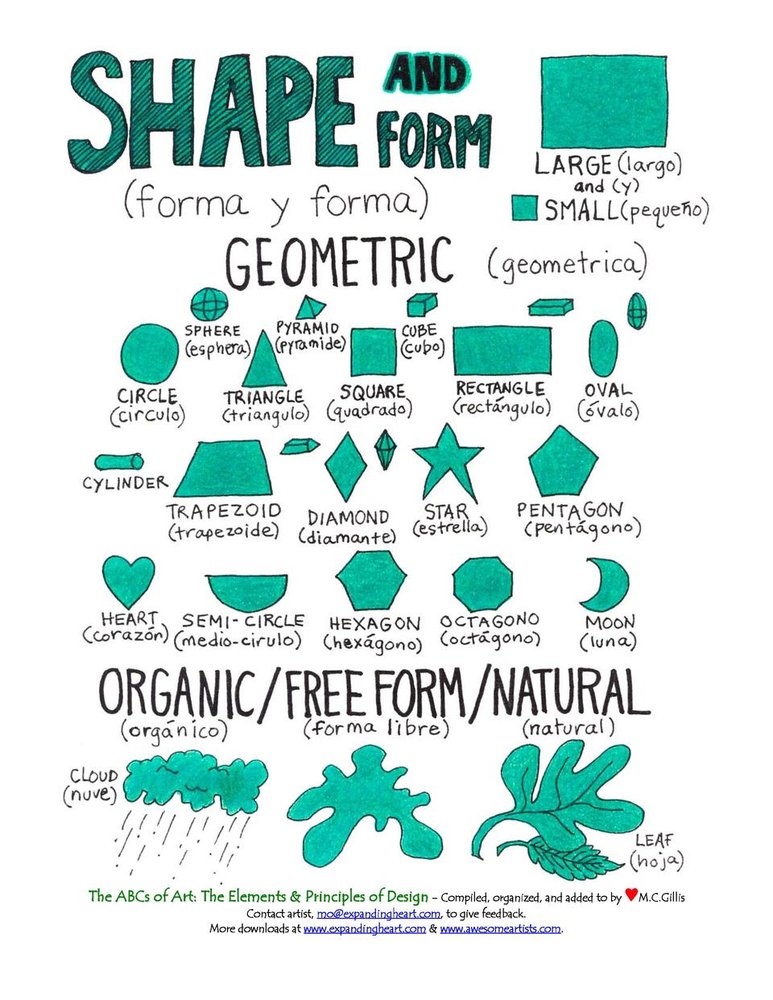 SHAPE AND FORM
(forma y forma)
LARGE (largo)
and (y)
SMALL (pequeño)
GEOMETRIC (geometrica)
SPHERE
(esphera)
PYRAMID
(pyramide)
CUBE
(cubo)
CIRCLE
(circulo)
TRIANGLE
(triangulo)
SQUARE
(quadrado)
RECTANGLE
(rectángulo)
OVAL
(óvalo)
CYLINDER
TRAPEZOID
(trapezoide)
DIAMOND
(diamante)
STAR
(estrella)
PENTAGON
(pentágono)
HEART
(corazón)
SEMI-CIRCLE
(medio-cirulo)
HEXAGON
(hexágono)
OCTAGONO
(octágono)
MOON
(luna)
ORGANIC/FREE FORM/NATURAL
(orgánico) (forma libre) (natural)
CLOUD
(nuve)
LEAF
(hoja)
The ABCs of Art: The Elements & Principles of Design – Compiled, organized, and added to by ♥M.C.Gillis
Contact artist, mo@expandingheart.com, to give feedback.
More downloads at www.expandingheart.com & www.awesomeartists.com.